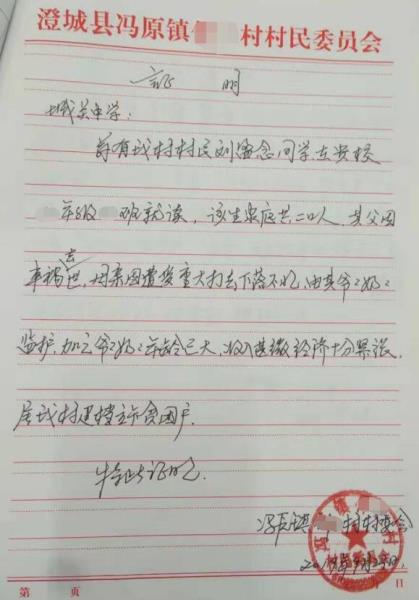 澄城县冯原镇 村村民委员会
证 明
城关中学:
兹有我村村民刘 同学在贵校
年级 班就读,该生家庭共二口人,其父因
车祸去世,母亲因遭受重大打击下落不明,由其爷爷奶奶
监护,加之爷爷奶奶年龄已大,收入甚微,经济十分紧张,
属我村建档立卡贫困户。
特此证明
冯原镇 村村委会
第 页 年 月 日